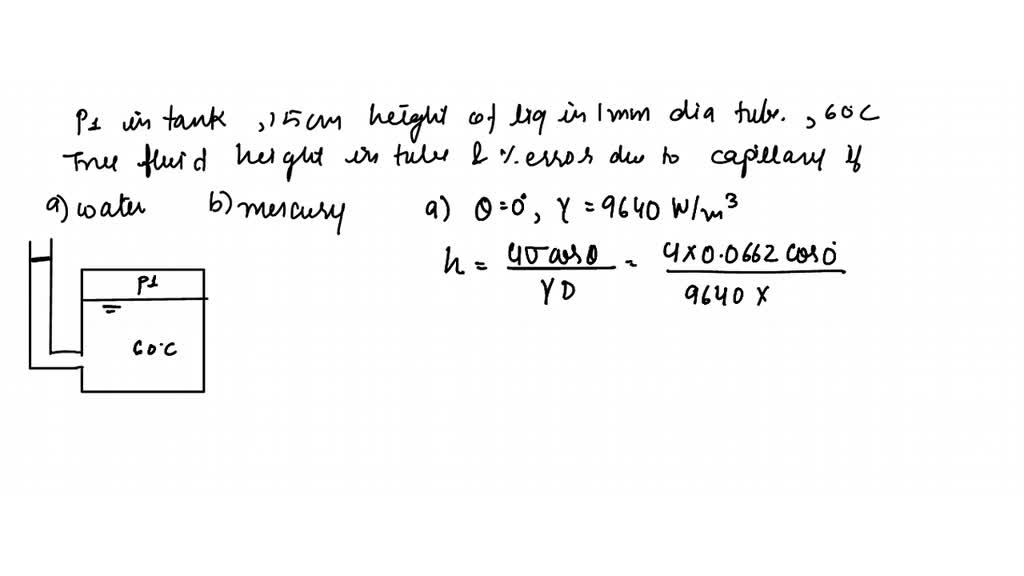 P1 in tank , 15 cm height of liq in 1 mm dia tube. , 60°C
True fluid height in tube & % error due to capillary if
a) water b) mercury
a) θ = 0°, γ = 9640 N/m³
h = 4σ cosθ / γD = 4 × 0.0662 cos 0° / 9640 ×
P1
60°C